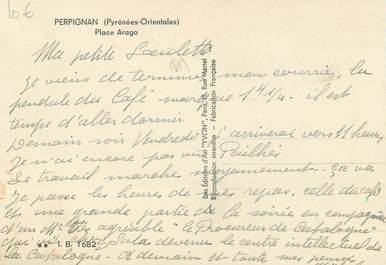 10€
PERPIGNAN (Pyrénées-Orientales)
Place Arago
Ma petite
Je viens de terminer mon courrier, la
pendule du Café marque 1h 1/4 - il est
temps d'aller dormir.
Demain soir Vendredi j'arriverai vers 21 heures
Je n'ai encore pas vu Peilhès
Le travail marche moyennement - ça va
Je passe les heures de mes repas, celle du café
et une grande partie de la soirée en compagnie
d'un agréable "le Procureur de Catalogne"
qui devenu le centre intellectuel de
la Catalogne - A demain et toute mes
I. B. 1682
Des Editions d'Art "YVON", Paris, 15, Rue Martel
Reproduction interdite - Fabrication Française